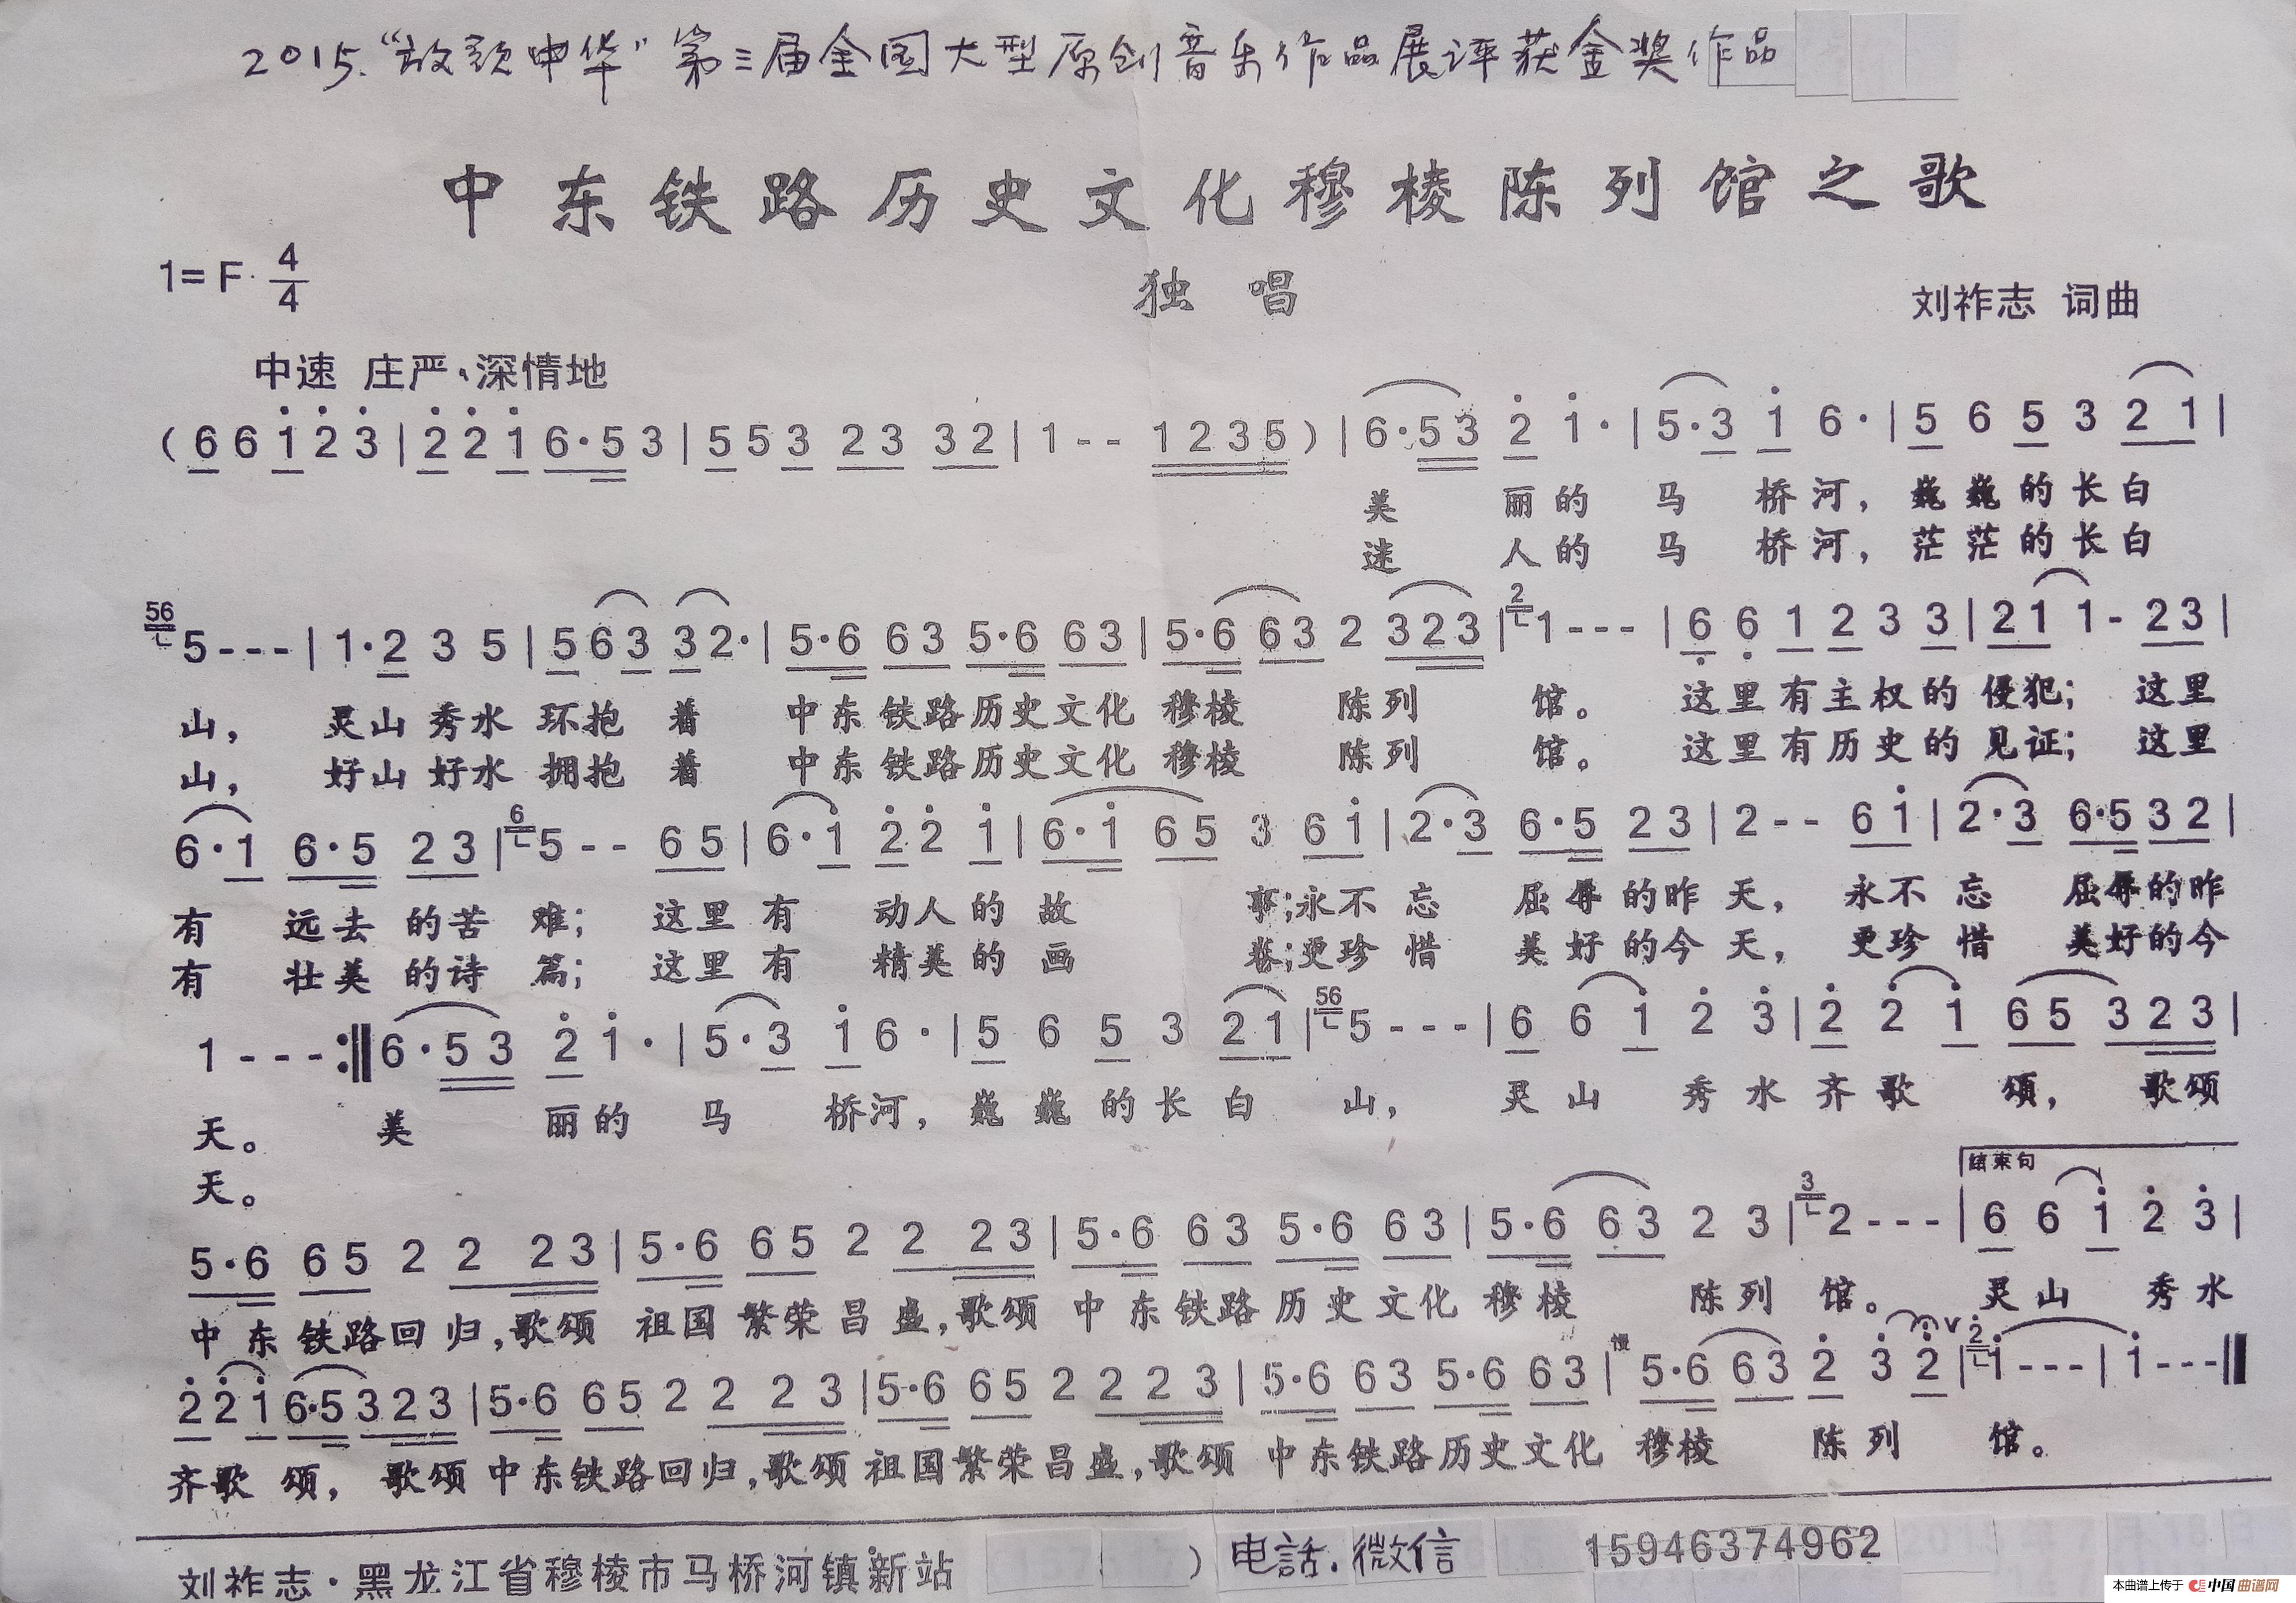 2015."放歌中华"第三届全国大型原创音乐作品展评获金奖作品
中东铁路历史文化穆棱陈列馆之歌
1=F 4/4
独唱
刘祚志 词曲
中速 庄严、深情地
(6 6 1̇ 2̇ 3̇ | 2̇ 2̇ 1̇ 6·5 3 | 5 5 3 2 3 3 2 | 1 - - 1 2 3 5 ) | 6·5 3 2̇ 1̇· | 5·3 1̇ 6· | 5 6 5 3 2 1 |
美 丽的 马 桥河, 巍巍的长白
迷 人的 马 桥河, 茫茫的长白
56 5 - - - | 1·2 3 5 | 5 6 3 3 2· | 5·6 6 3 5·6 6 3 | 5·6 6 3 2 3 2 3 | 2 1 - - - | 6̣ 6̣ 1 2 3 3 | 2 1 1 - 2 3 |
山, 灵山秀水 环抱 着 中东铁路历史文化 穆棱 陈列 馆。 这里有主权的 侵犯; 这里
山, 好山好水 拥抱 着 中东铁路历史文化 穆棱 陈列 馆。 这里有历史的 见证; 这里
6·1 6·5 2 3 | 6 5 - - 6 5 | 6·1̇ 2̇ 2̇ 1̇ | 6·1̇ 6 5 3 6 1̇ | 2·3 6·5 2 3 | 2 - - 6 1̇ | 2·3 6·5 3 2 |
有 远去 的苦 难; 这里有 动人的 故 事;永不忘 屈辱的昨天, 永不忘 屈辱的昨
有 壮美 的诗 篇; 这里有 精美的 画 卷;更珍惜 美好的今天, 更珍惜 美好的今
1 - - - :‖ 6·5 3 2̇ 1̇· | 5·3 1̇ 6· | 5 6 5 3 2 1 | 56 5 - - - | 6 6 1̇ 2̇ 3̇ | 2̇ 2̇ 1̇ 6 5 3 2 3 |
天。 美 丽的 马 桥河, 巍巍的长白 山, 灵山 秀水 齐歌 颂, 歌颂
天。
结束句
5·6 6 5 2 2 2 3 | 5·6 6 5 2 2 2 3 | 5·6 6 3 5·6 6 3 | 5·6 6 3 2 3 | 3 2 - - - | 6 6 1̇ 2̇ 3̇ |
中东铁路回归,歌颂 祖国繁荣昌盛,歌颂 中东铁路历史文化 穆棱 陈列 馆。 灵山 秀水
慢
2̇ 2̇ 1̇ 6·5 3 2 3 | 5·6 6 5 2 2 2 3 | 5·6 6 5 2 2 2 3 | 5·6 6 3 5·6 6 3 | 5·6 6 3 2̇ 3̇ 2̇ ∨ | 2̇ 1̇ - - - | 1̇ - - - ‖
齐歌 颂, 歌颂 中东铁路回归,歌颂 祖国繁荣昌盛,歌颂 中东铁路历史文化 穆棱 陈列 馆。
刘祚志·黑龙江省穆棱市马桥河镇新站 ) 电話.微信 15946374962
本曲谱上传于 中国曲谱网